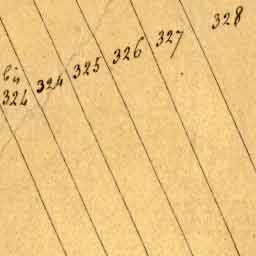 bis
324
324
325
326
327
328